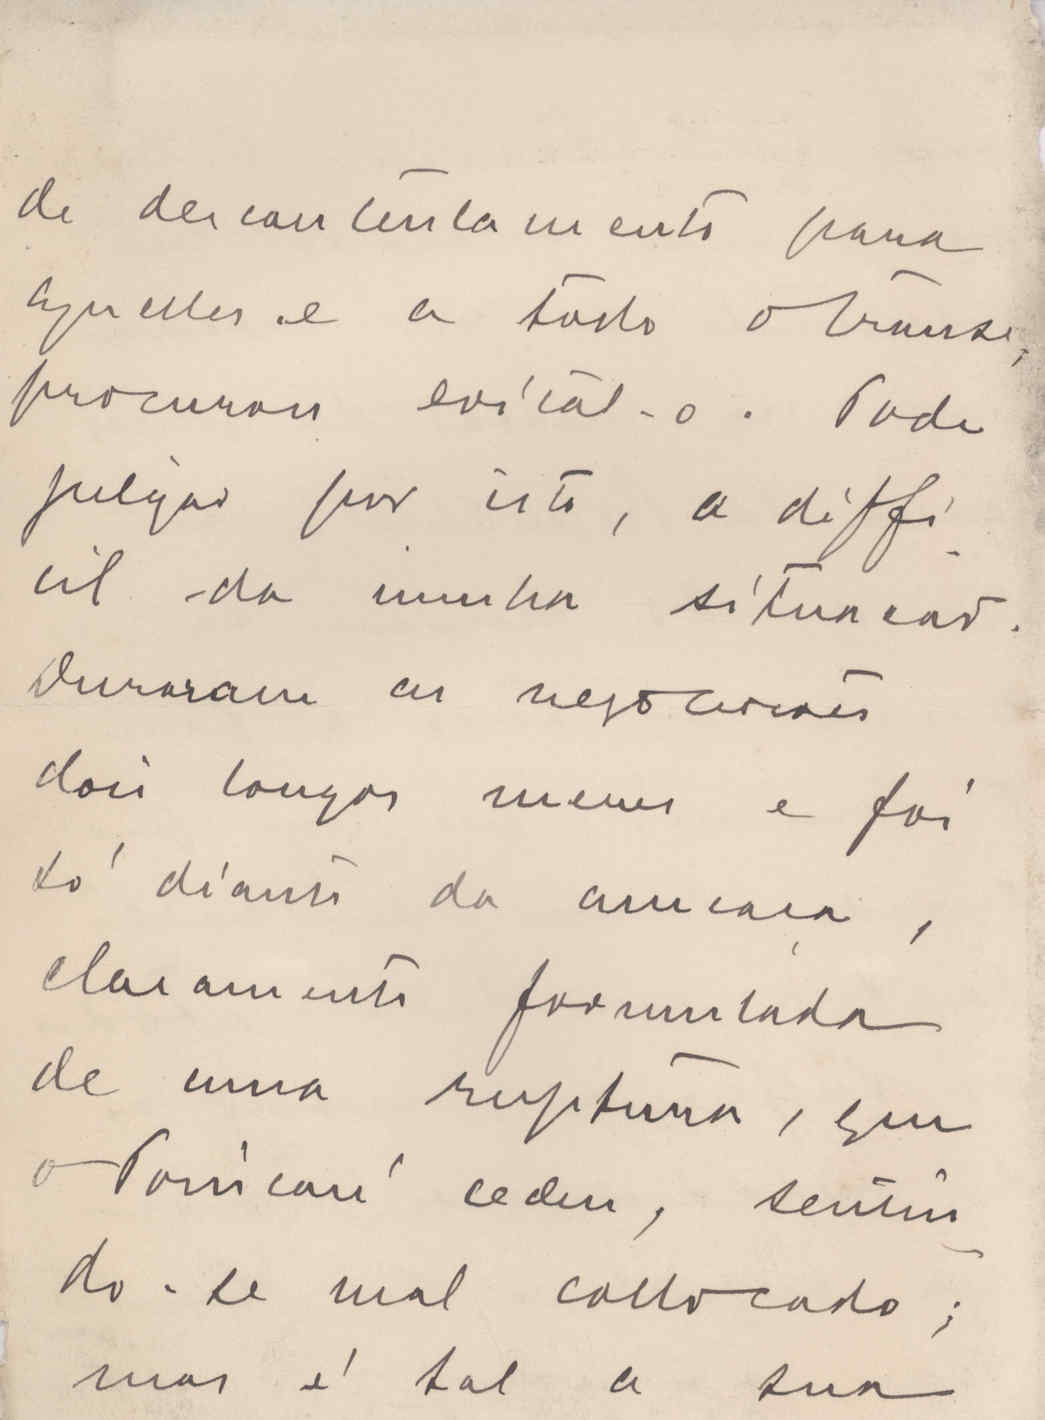 de descontentamento para
aquelles e a todo o transe,
procurou evital-o. Pode
julgar por isto, a diffi-
cil da minha situacão.
Duraram as negociacões
dois longos meses e foi
só diante da ameaça,
claramente formulada
de uma ruptura, que
o Poincaré cedeu, sentin-
do-se mal collocado;
mas é tal a sua